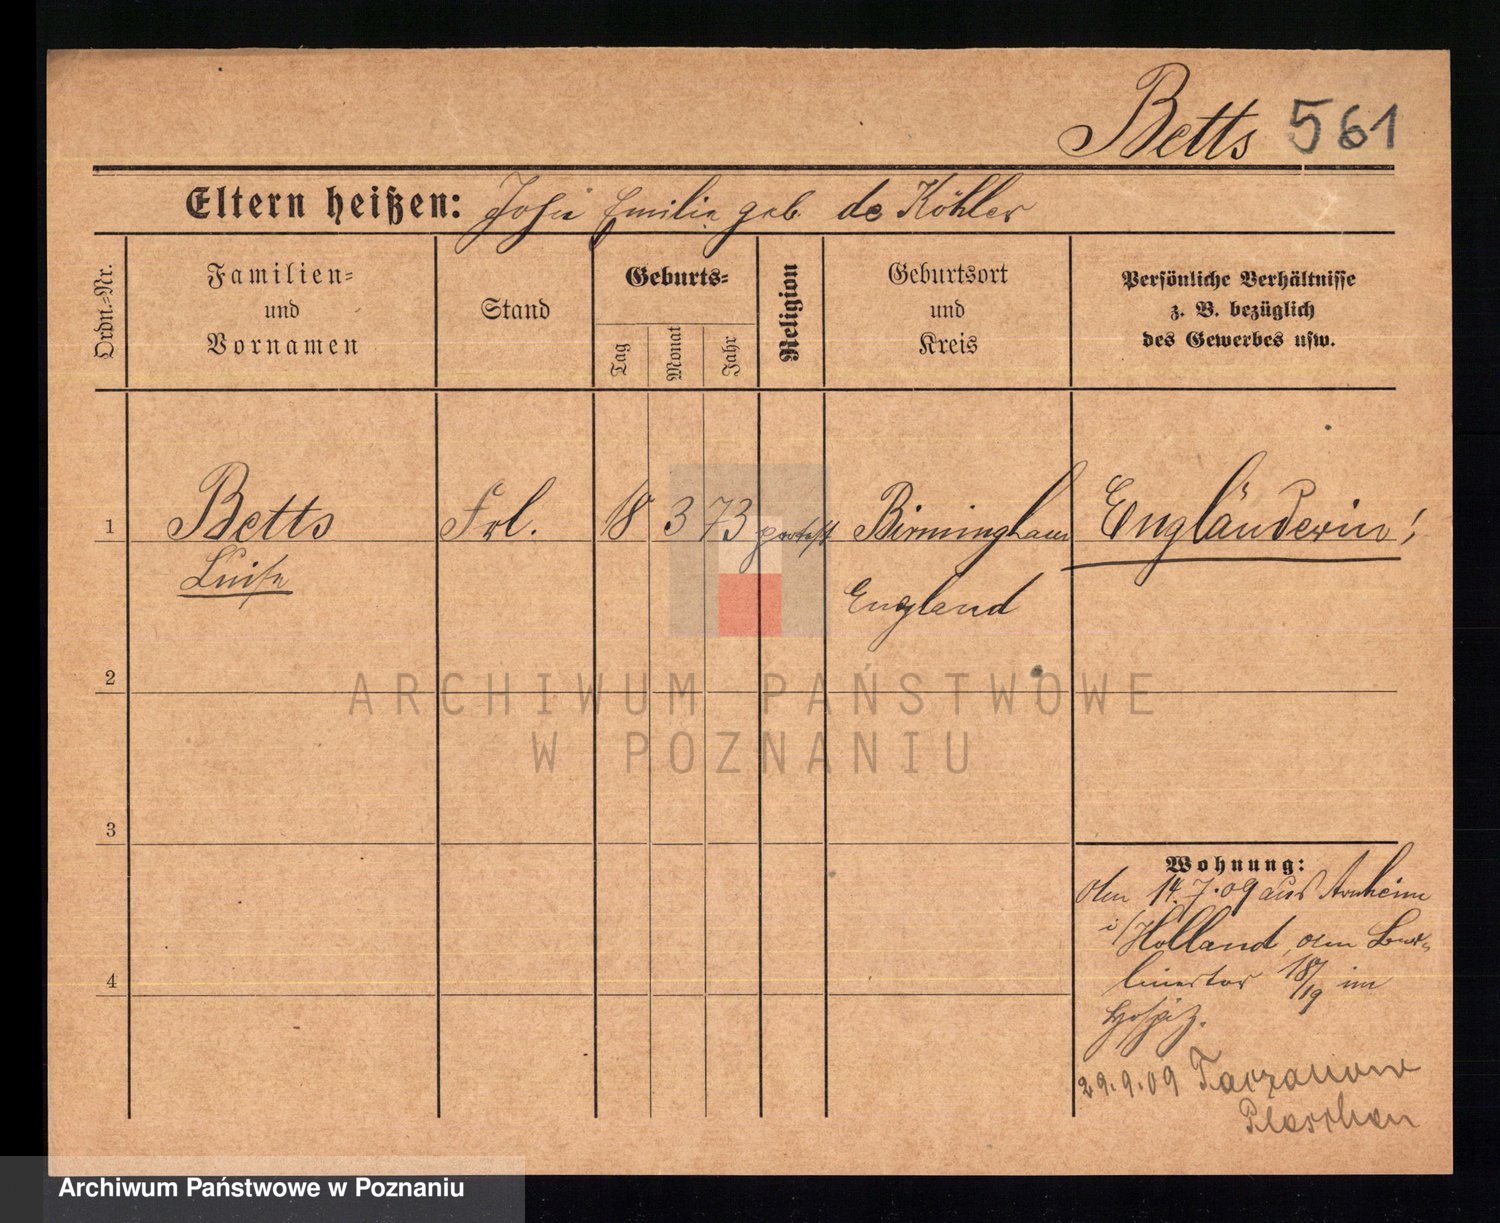 Betts 561
Eltern heißen: Josu Emilie geb. de Köhler
Ordn.=Nr.
Familien=
und
Vornamen
Stand
Geburts=
Tag
Monat
Jahr
Religion
Geburtsort
und
Kreis
Persönliche Verhältnisse
z. B. bezüglich
des Gewerbes usw.
1 Betts Frl. 18 3 73 protest Birmingham Engländerin!
Luise
England
2
3
4
Wohnung:
14.7.09 aus Arnheim
i/Holland, am Ber-
linertor 18/19 im
Hospiz.
29.9.09 Taczanow
Pleschen
ARCHIWUM PAŃSTWOWE
W POZNANIU
Archiwum Państwowe w Poznaniu